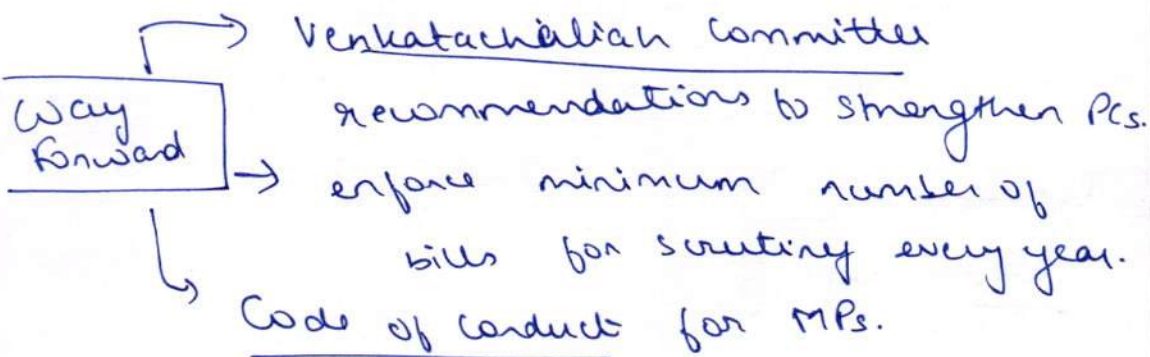 Venkatachaliah Committee
Way
Forward
recommendations to strengthen PCs.
enforce minimum number of
bills for scrutiny every year.
Code of conduct for MPs.